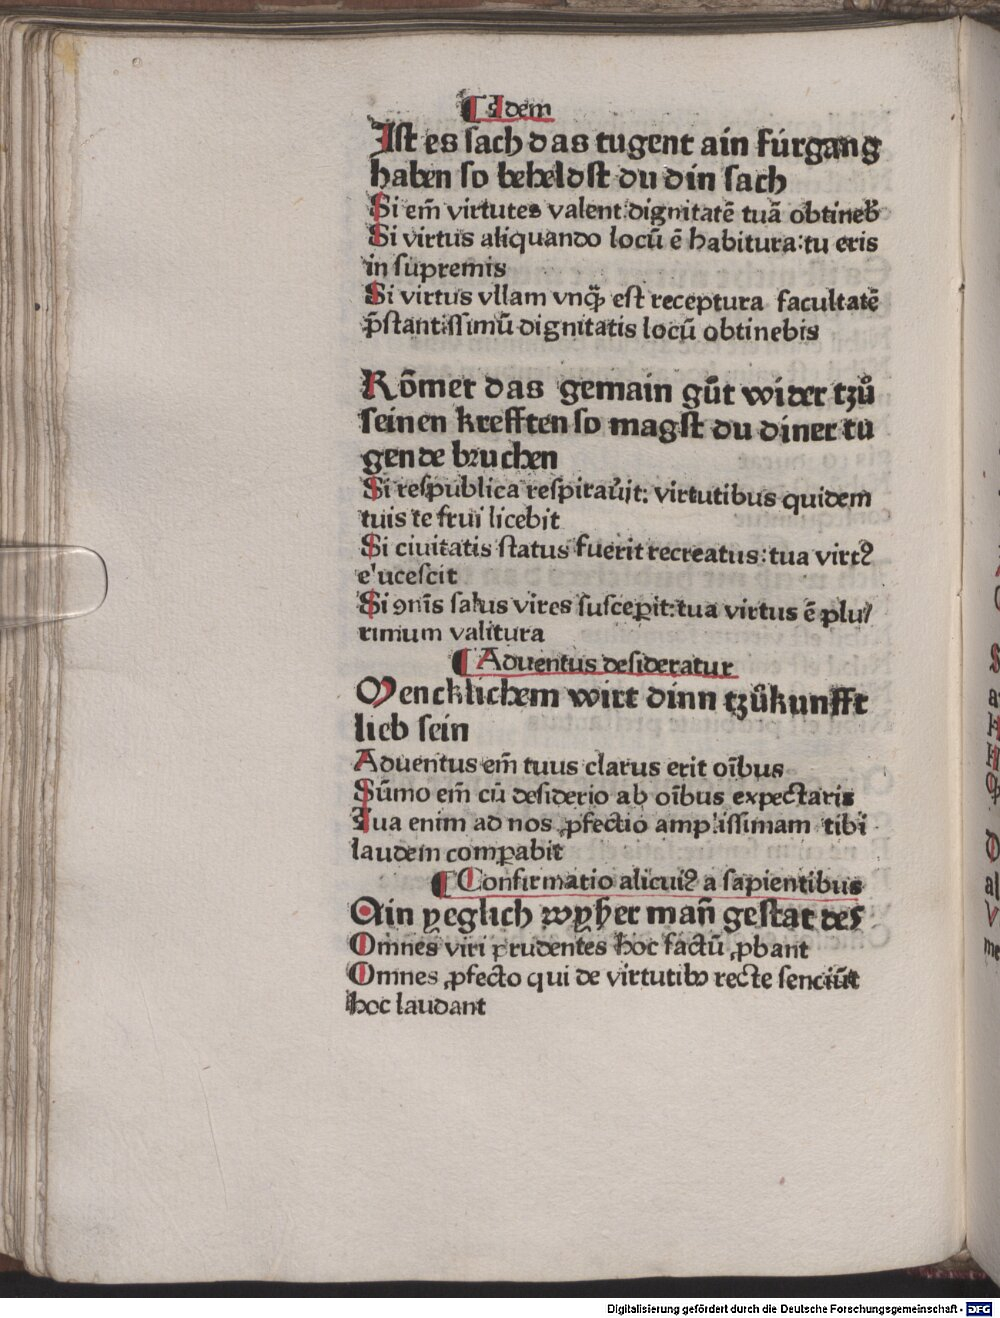 ¶ Idem
Ist es sach das tugent ain fúrgang
haben so beheldst du din sach
Si em̄ virtutes valent: dignitatē tuā obtineb̄
Si virtus aliquando locū ē habitura: tu eris
in supremis
Si virtus vllam vnq̄ est receptura facultatē
p̄stantissimū dignitatis locū obtinebis
Kōmet das gemain gůt wider tzů
seinen krefften so magst du diner tu
gende bruchen
Si respublica respirau̇it: virtutibus quidem
tuis te frui licebit
Si ciuitatis status fuerit recreatus: tua virtꝰ
e'ucescit
Si ꝯnīs salus vires susceꝑit: tua virtus ē plu/
rimum valitura
¶ Aduentus desideratur
Mencklichem wirt dinn tzůkunfft
lieb sein
Aduentus em̄ tuus clarus erit oībus
Sūmo em̄ cū desiderio ab oībus expectaris
Tua enim ad nos ꝓfectio amplissimam tibi
laudem comꝑabit
¶ Confirmatio alicuiꝰ a sapientibus
Ain yeglich wyßer man̄ gestat des
Omnes viri prudentes hoc factū ꝓbant
Omnes ꝓfecto qui de virtutibꝫ recte senciūt
hoc laudant
Digitalisierung gefördert durch die Deutsche Forschungsgemeinschaft - DFG